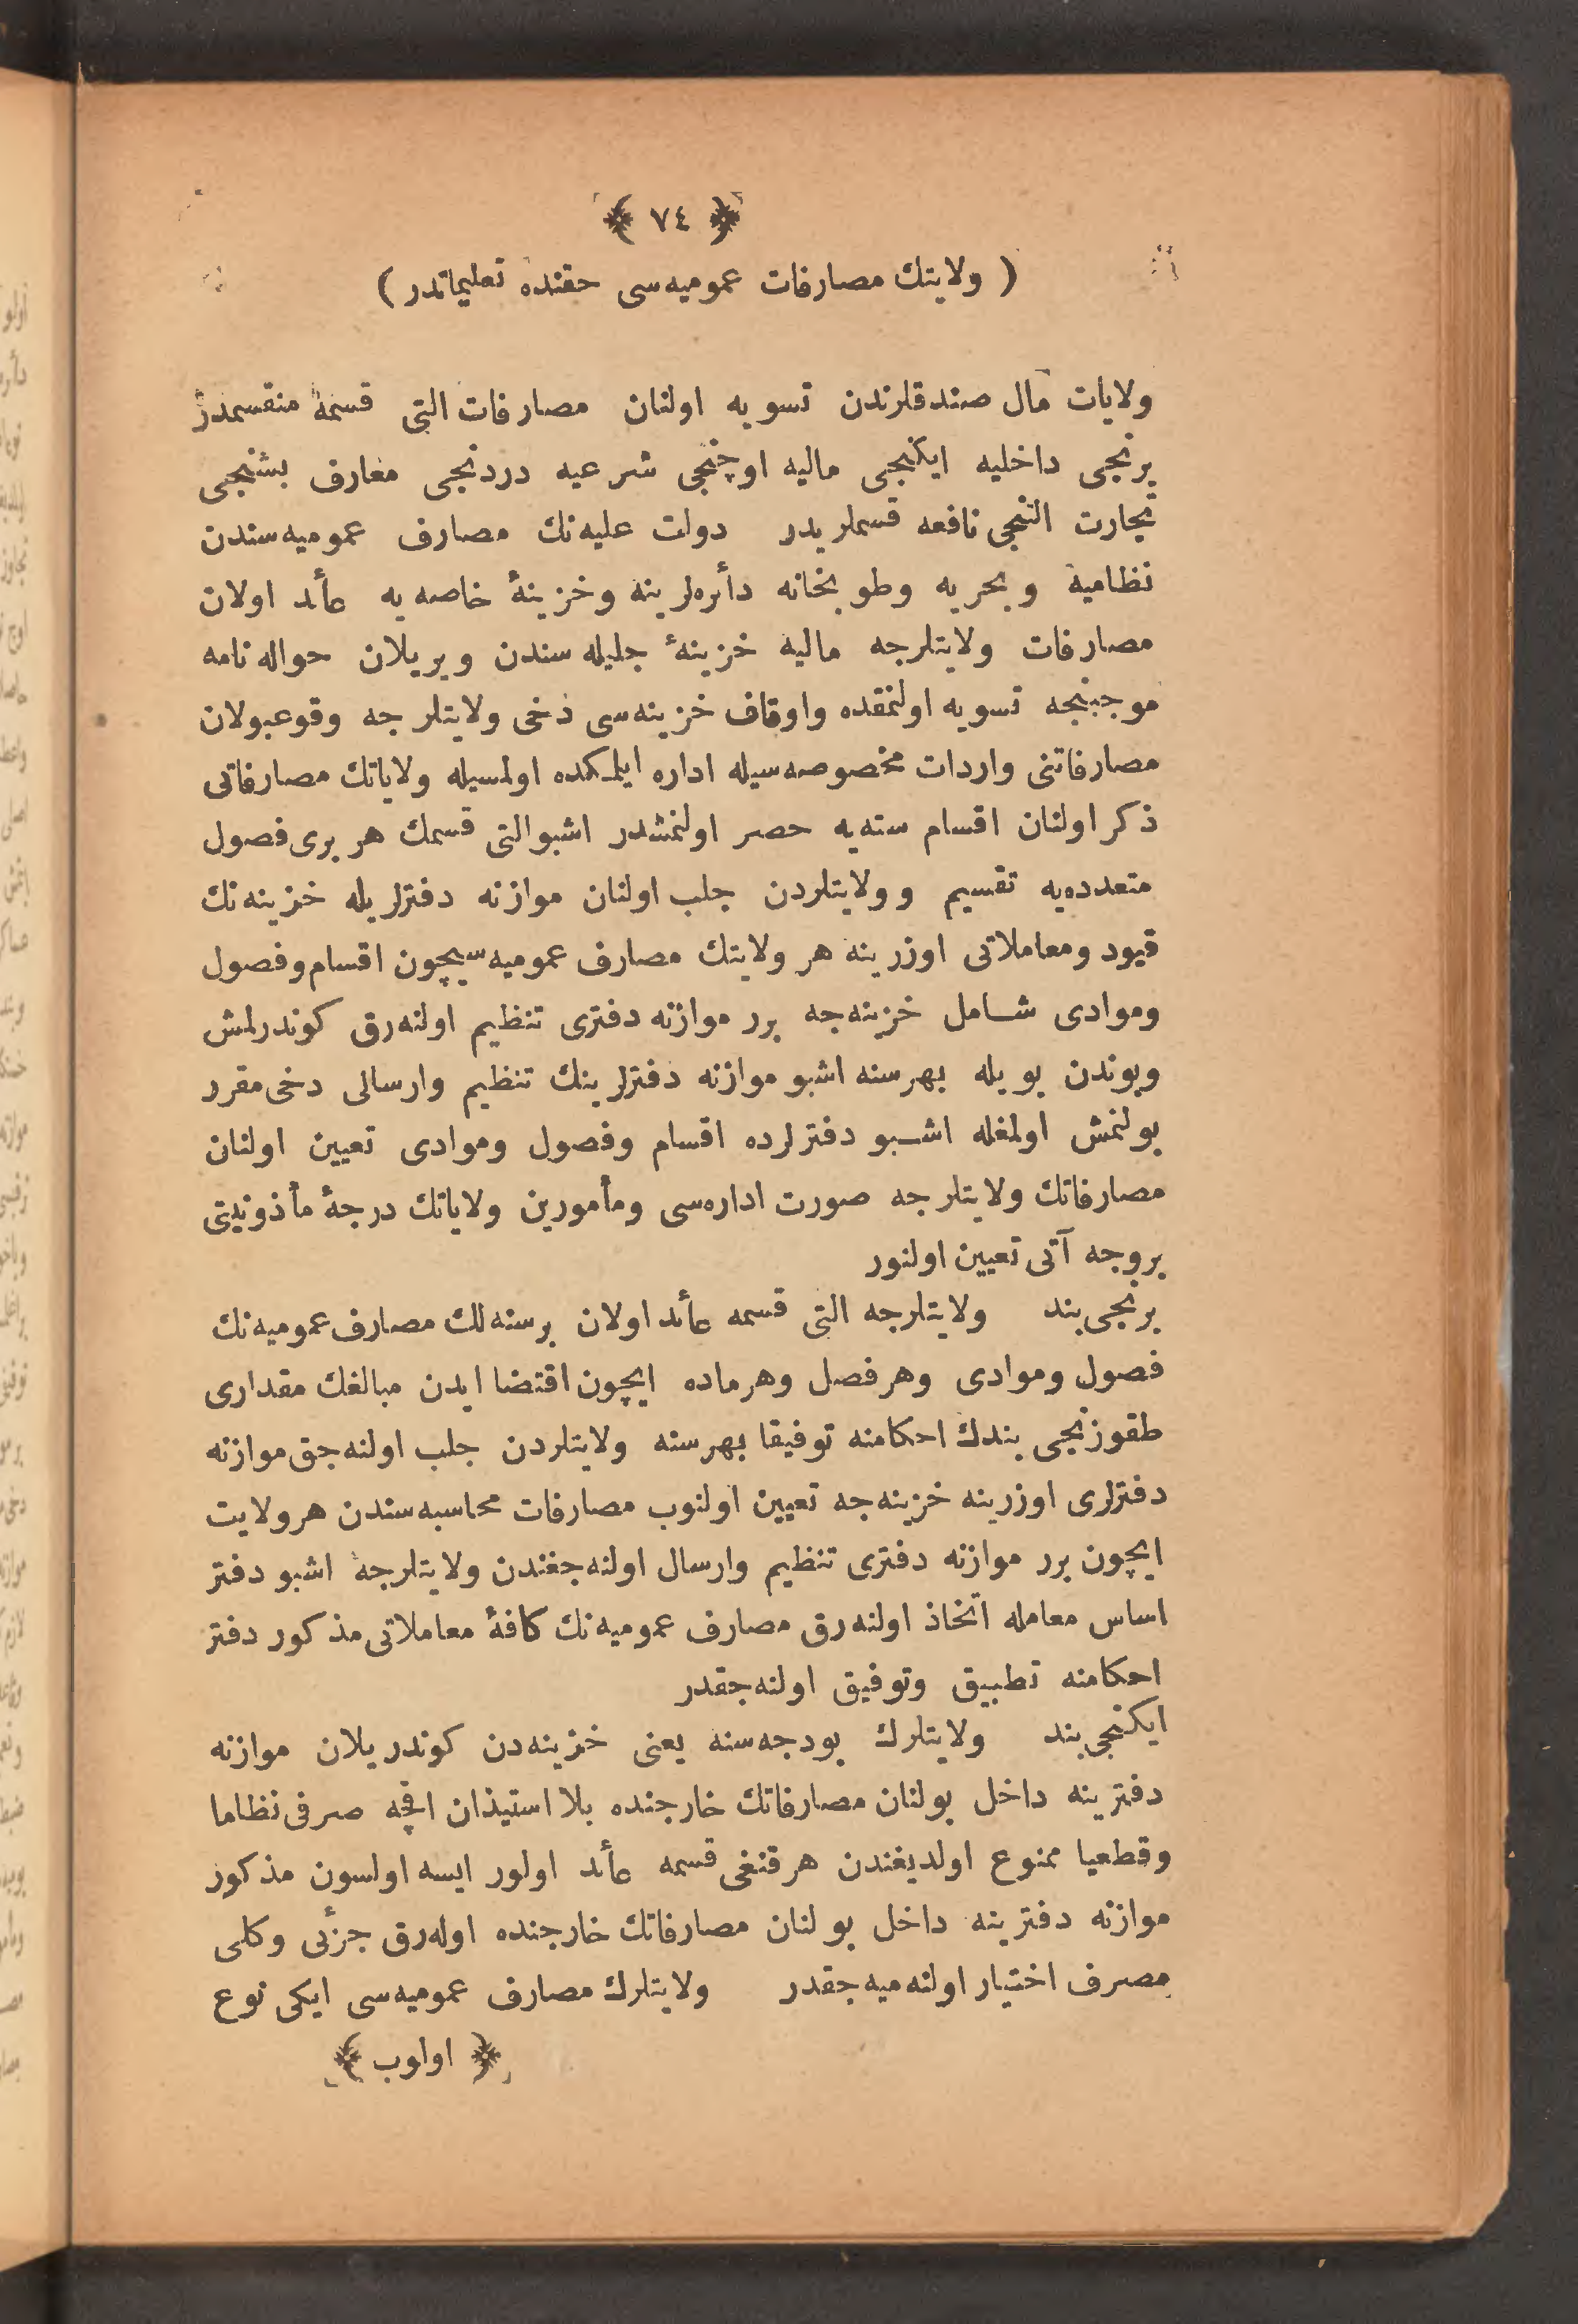 ﴿ ٧٤ ﴾
( ولايتك مصارفات عموميه‌سى حقنده تعليماتدر )
ولايات مال صندقلرندن تسويه اولنان مصارفات التى قسمه منقسمدر
برنجى داخليه ايكنجى ماليه اوچنجى شرعيه دردنجى معارف بشنجى
تجارت التنجى نافعه قسملريدر دولت عليه‌نك مصارف عموميه‌سندن
نظاميه وبحريه وطوپخانه دأئره‌لرينه وخزينهٔ خاصه‌يه عأئد اولان
مصارفات ولايتلرجه ماليه خزينهٔ جليله‌سندن ويريلان حواله‌نامه
موجبنجه تسويه اولنمقده واوقاف خزينه‌سى دخى ولايتلرجه وقوعبولان
مصارفاتنى واردات مخصوصه‌سيله اداره ايلمكده اولمسيله ولاياتك مصارفاتى
ذكر اولنان اقسام سته‌يه حصر اولنمشدر اشبو التى قسمك هر برى فصول
متعدده‌يه تقسيم وولايتلردن جلب اولنان موازنه دفترلريله خزينه‌نك
قيود ومعاملاتى اوزرينه هر ولايتك مصارف عموميه‌سيچون اقسام وفصول
وموادى شامل خزينه‌جه برر موازنه دفترى تنظيم اولنه‌رق كوندرلمش
وبوندن بويله بهرسنه اشبو موازنه دفترلرينك تنظيم وارسالى دخى مقرر
بولنمش اولمغله اشبو دفترلرده اقسام وفصول وموادى تعيين اولنان
مصارفاتك ولايتلرجه صورت اداره‌سى ومأمورين ولاياتك درجهٔ مأذونيتى
بروجه آتى تعيين اولنور
برنجى بند ولايتلرجه التى قسمه عأئد اولان برسنه‌لك مصارف عموميه‌نك
فصول وموادى وهر فصل وهر ماده ايچون اقتضا ايدن مبالغك مقدارى
طقوزنجى بندك احكامنه توفيقا بهرسنه ولايتلردن جلب اولنه‌جق موازنه
دفترلرى اوزرينه خزينه‌جه تعيين اولنوب مصارفات محاسبه‌سندن هر ولايت
ايچون برر موازنه دفترى تنظيم وارسال اولنه‌جغندن ولايتلرجه اشبو دفتر
اساس معامله اتخاذ اولنه‌رق مصارف عموميه‌نك كافهٔ معاملاتى مذكور دفتر
احكامنه تطبيق وتوفيق اولنه‌جقدر
ايكنجى بند ولايتلرك بودجه‌سنه يعنى خزينه‌دن كوندريلان موازنه
دفترينه داخل بولنان مصارفاتك خارجنده بلا استيذان اقچه صرفى نظاما
وقطعيا ممنوع اولديغندن هر قنغى قسمه عأئد اولور ايسه اولسون مذكور
موازنه دفترينه داخل بولنان مصارفاتك خارجنده اوله‌رق جزئى وكلى
مصرف اختيار اولنه‌ميه‌جقدر ولايتلرك مصارف عموميه‌سى ايكى نوع
﴿ اولوب ﴾